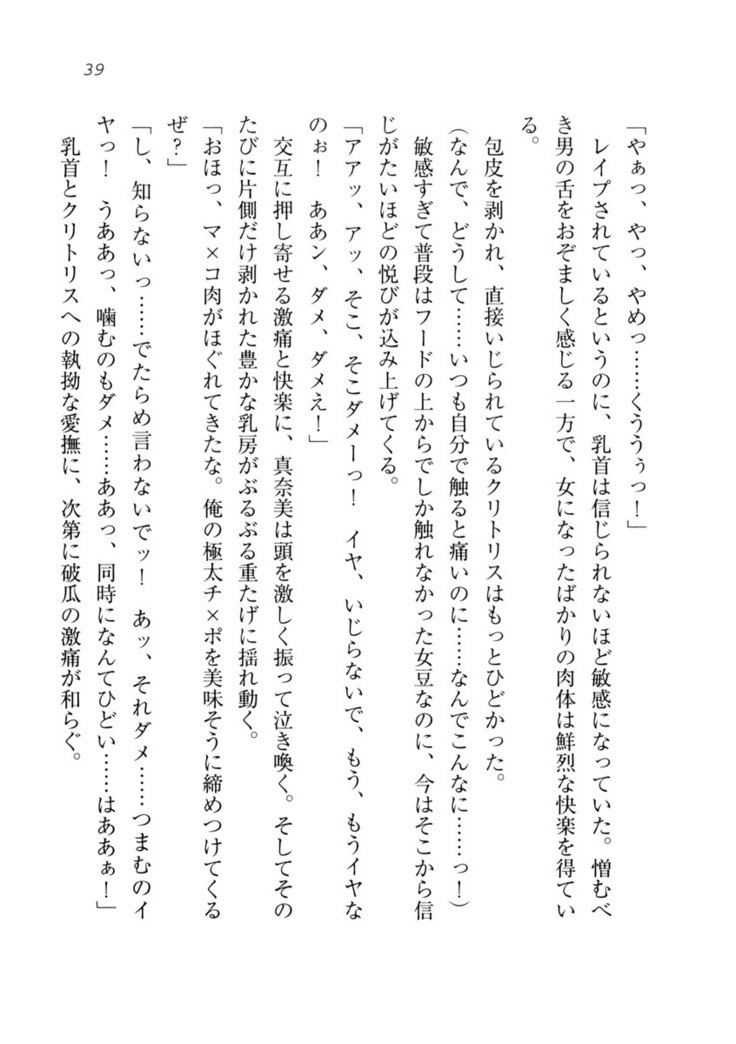 39
「やぁっ、やっ、やめっ……くううぅっ！」
レイプされているというのに、乳首は信じられないほど敏感になっていた。憎むべ
き男の舌をおぞましく感じる一方で、女になったばかりの肉体は鮮烈な快楽を得てい
る。
包皮を剥かれ、直接いじられているクリトリスはもっとひどかった。
（なんで、どうして……いつも自分で触ると痛いのに……なんでこんなに……っ！）
敏感すぎて普段はフードの上からでしか触れなかった女豆なのに、今はそこから信
じがたいほどの悦びが込み上げてくる。
「アアッ、アッ、そこ、そこダメーっ！　イヤ、いじらないで、もう、もうイヤな
のぉ！　ああン、ダメ、ダメえ！」
交互に押し寄せる激痛と快楽に、真奈美は頭を激しく振って泣き喚く。そしてその
たびに片側だけ剥かれた豊かな乳房がぶるぶる重たげに揺れ動く。
「おほっ、マ×コ肉がほぐれてきたな。俺の極太チ×ポを美味そうに締めつけてくる
ぜ？」
「し、知らないっ……でたらめ言わないでッ！　あッ、それダメ……つまむのイ
ヤっ！　うああっ、噛むのもダメ……ああっ、同時になんてひどい……はああぁ！」
乳首とクリトリスへの執拗な愛撫に、次第に破瓜の激痛が和らぐ。